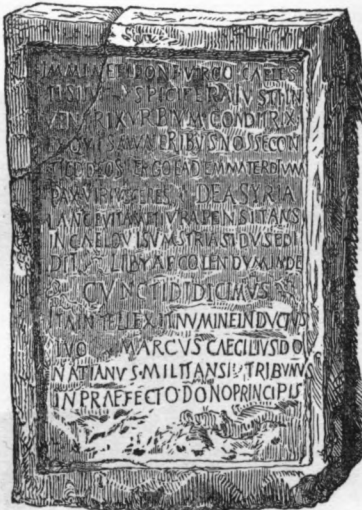 IMMINET LEONI VIRGO CAELES
TI SITV SPICIFERA IVSTI IN
VENTRIX VRBIVM CONDITRIX
EX QVIS MVNERIBVS NOSSE CON
TIGIT DEOS ERGO EADEM MATER DIVVM
PAX VIRTVS CERES DEA SYRIA
LANCE VITAM ET IVRA PENSITANS
IN CAELO VISVM SYRIA SIDVS EDI
DIT LIBYAE COLENDVM INDE
CVNCTI DIDICIMVS
ITA INTELLEXIT NVMINE INDVCTVS
TVO MARCVS CAECILIVS DO
NATIANVS·MILITANS TRIBVNVS
IN PRAEFECTO·DONO PRINCIPIS